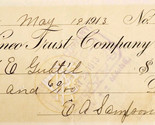 May 19 1913 No
neo Trust Company
E Gubtil $
and 60/100
E A Sampson